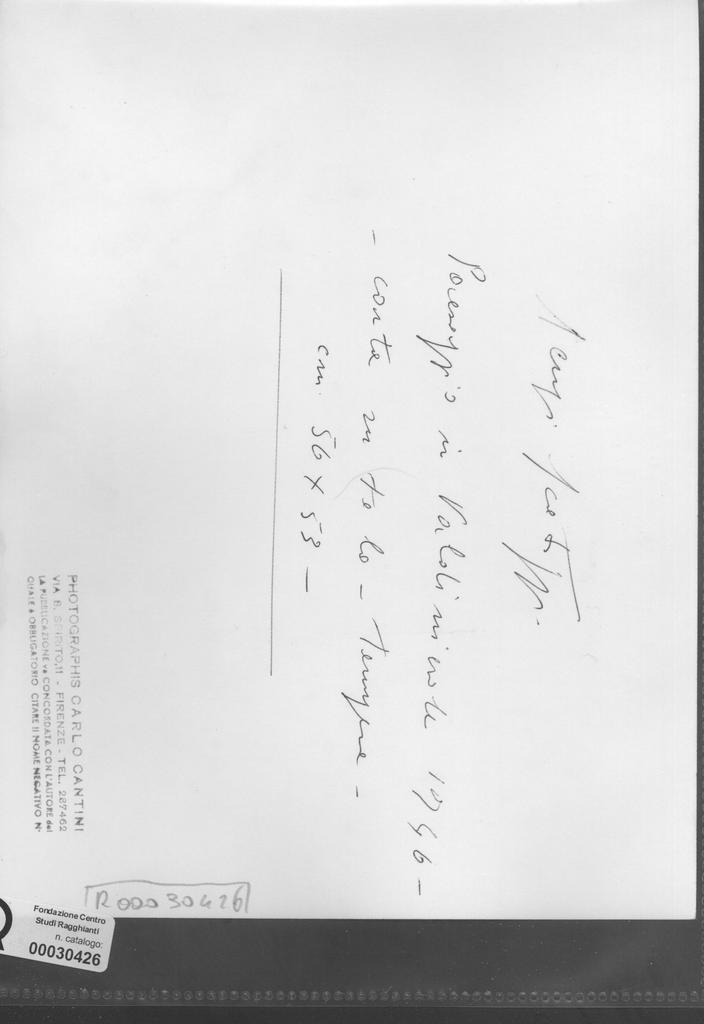 Paesaggio in Valdinievole 1946 –
– carta su tela – tempera –
cm. 56 x 53 –
PHOTOGRAPHIS CARLO CANTINI
VIA B. SPIRITO, 11 - FIRENZE - TEL. 287462
LA PUBBLICAZIONE VA CONCORDATA CON L'AUTORE del
QUALE è OBBLIGATORIO CITARE il NOME NEGATIVO N°
R0030426
Fondazione Centro
Studi Ragghianti
n. catalogo:
00030426